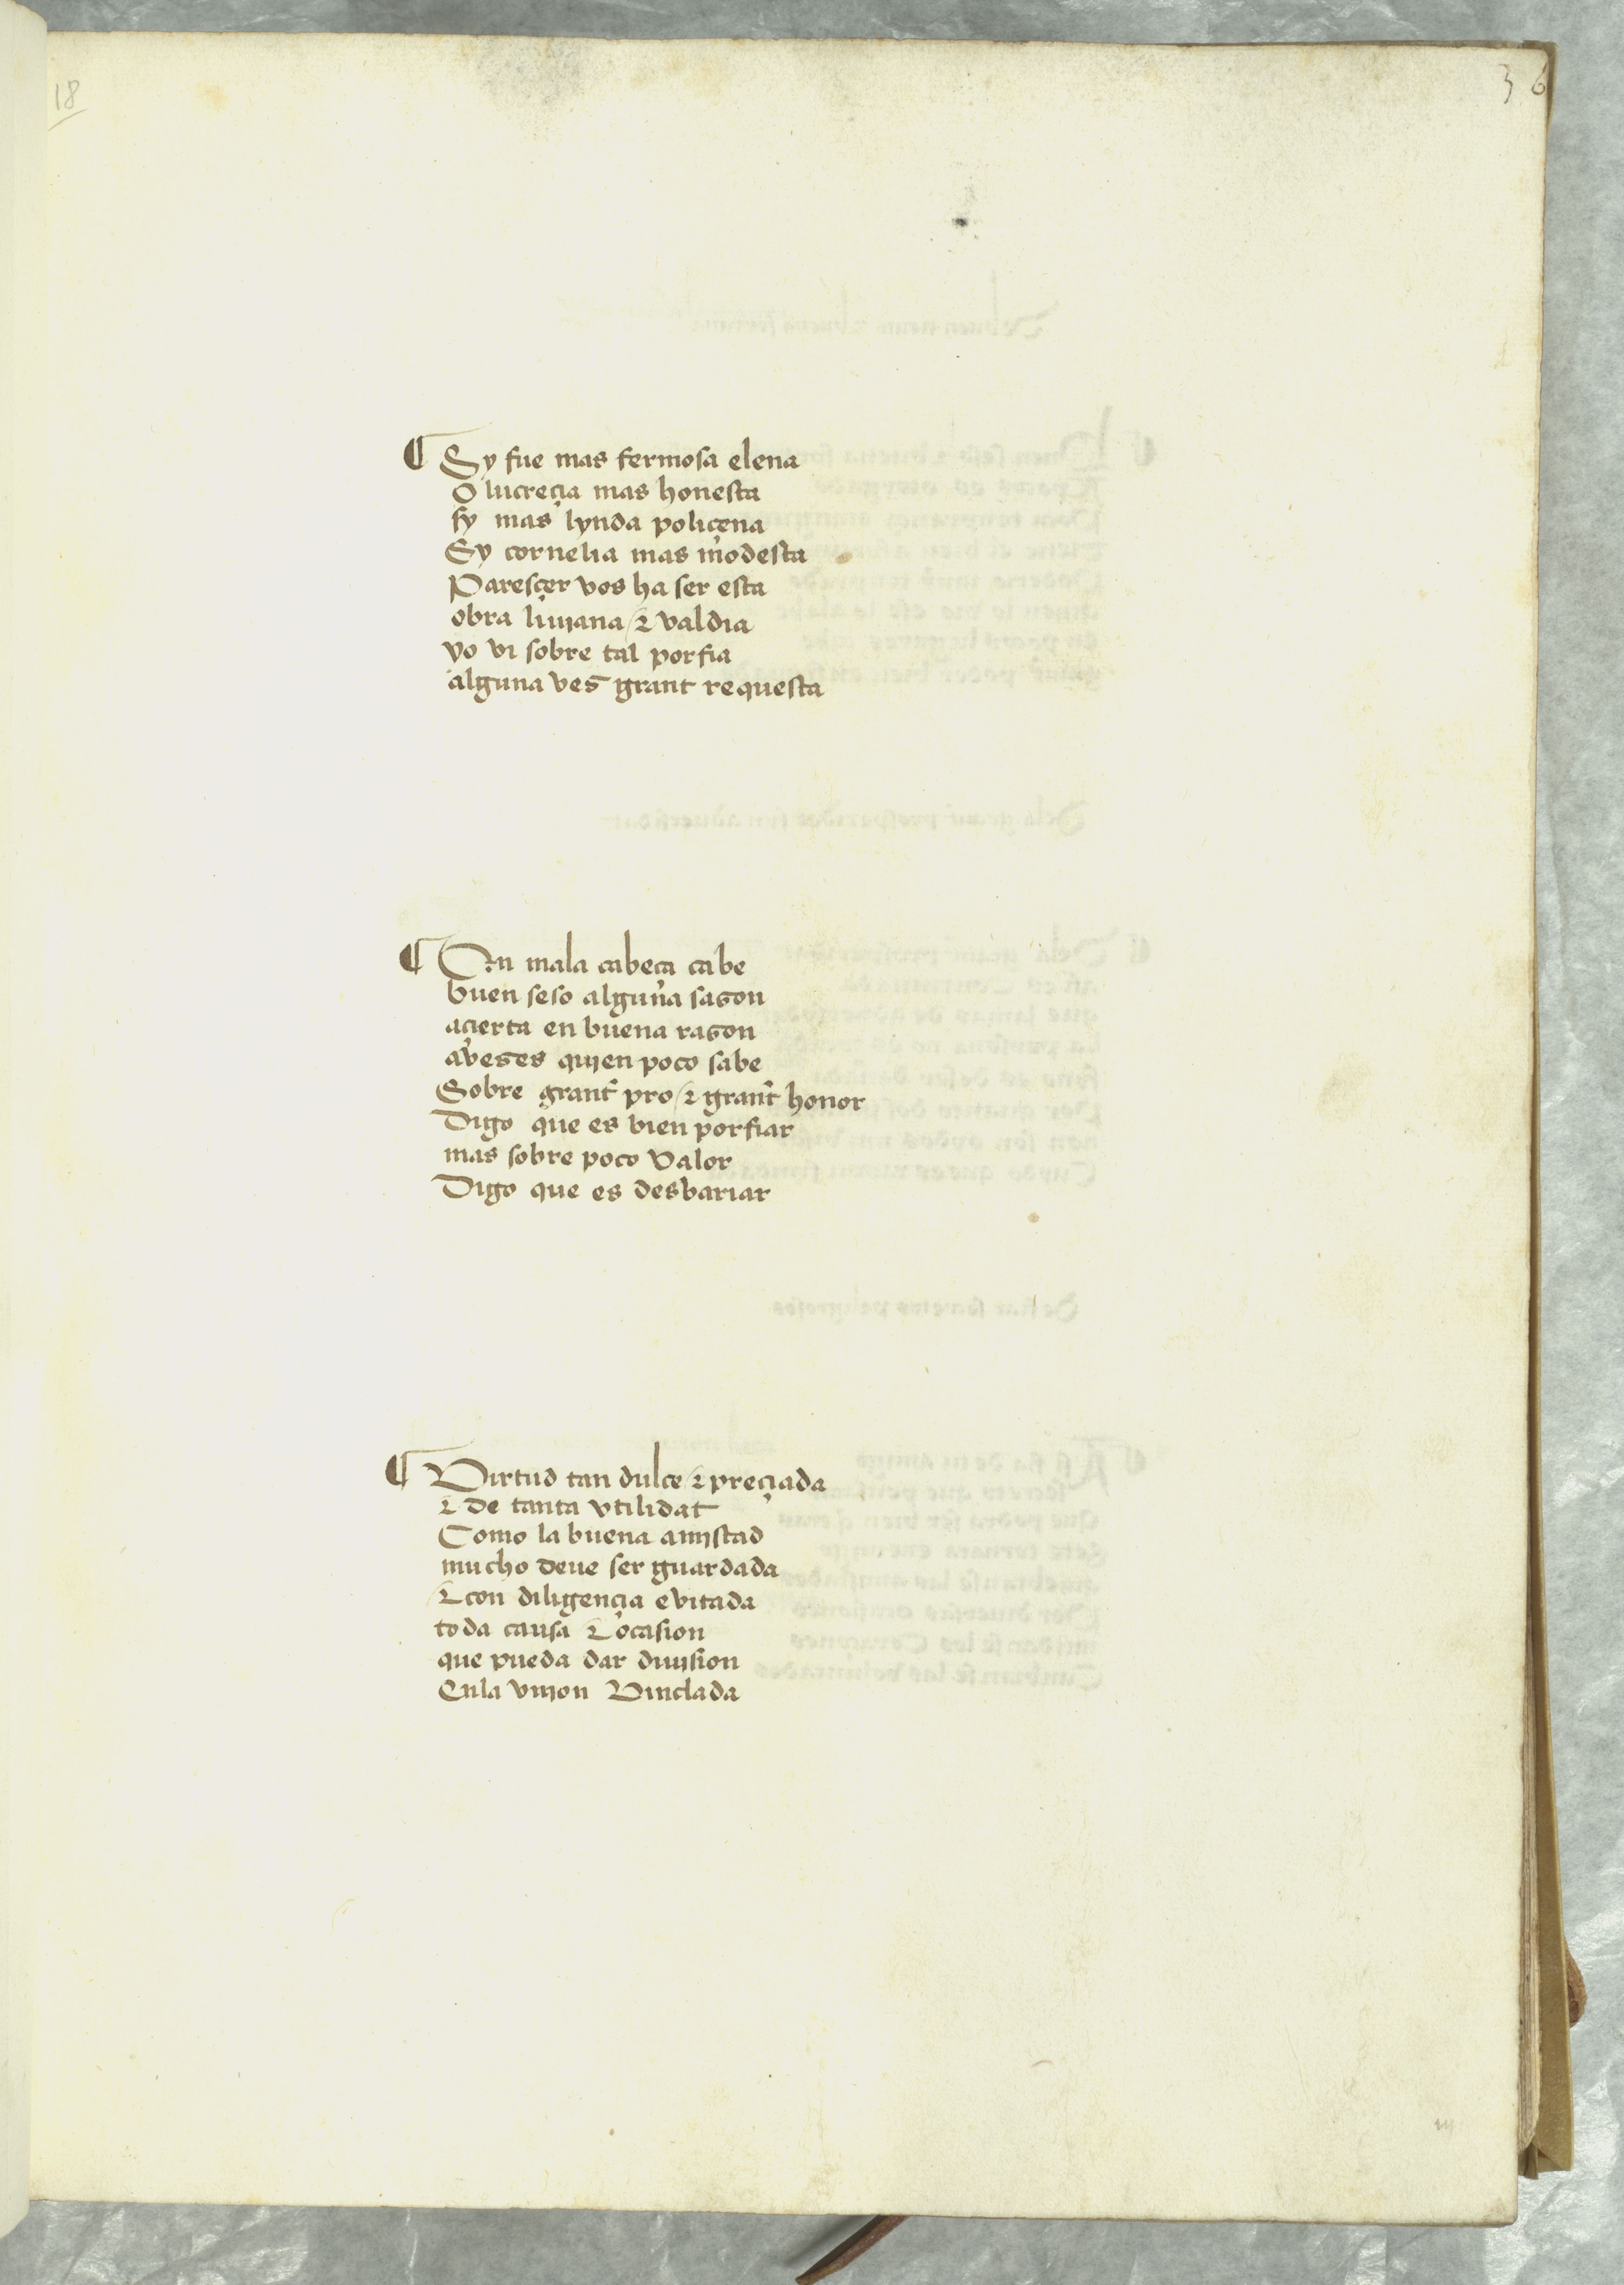 18
36
¶ Sy fue mas fermosa elena
O lucreçia mas honesta
sy mas lynda poliçena
Sy cornelia mas modesta
Paresçer vos ha ser esta
obra liuiana / ⁊ valdia
yo vi sobre tal porfia
alguna ves grant requesta
¶ En mala cabeça cabe
buen seso alguna sason
açierta en buena rason
aveses quien poco sabe
Sobre grant pro / ⁊ grant honor
Digo que es bien porfiar
mas sobre poco valor
Digo que es desbariar
¶ Virtud tan dulce / ⁊ preçiada
⁊ de tanta vtilidat
Como la buena amistad
mucho deue ser guardada
⁊ con diligençia evitada
toda causa ⁊ ocasion
que pueda dar diuision
Enla vnion Vinclada